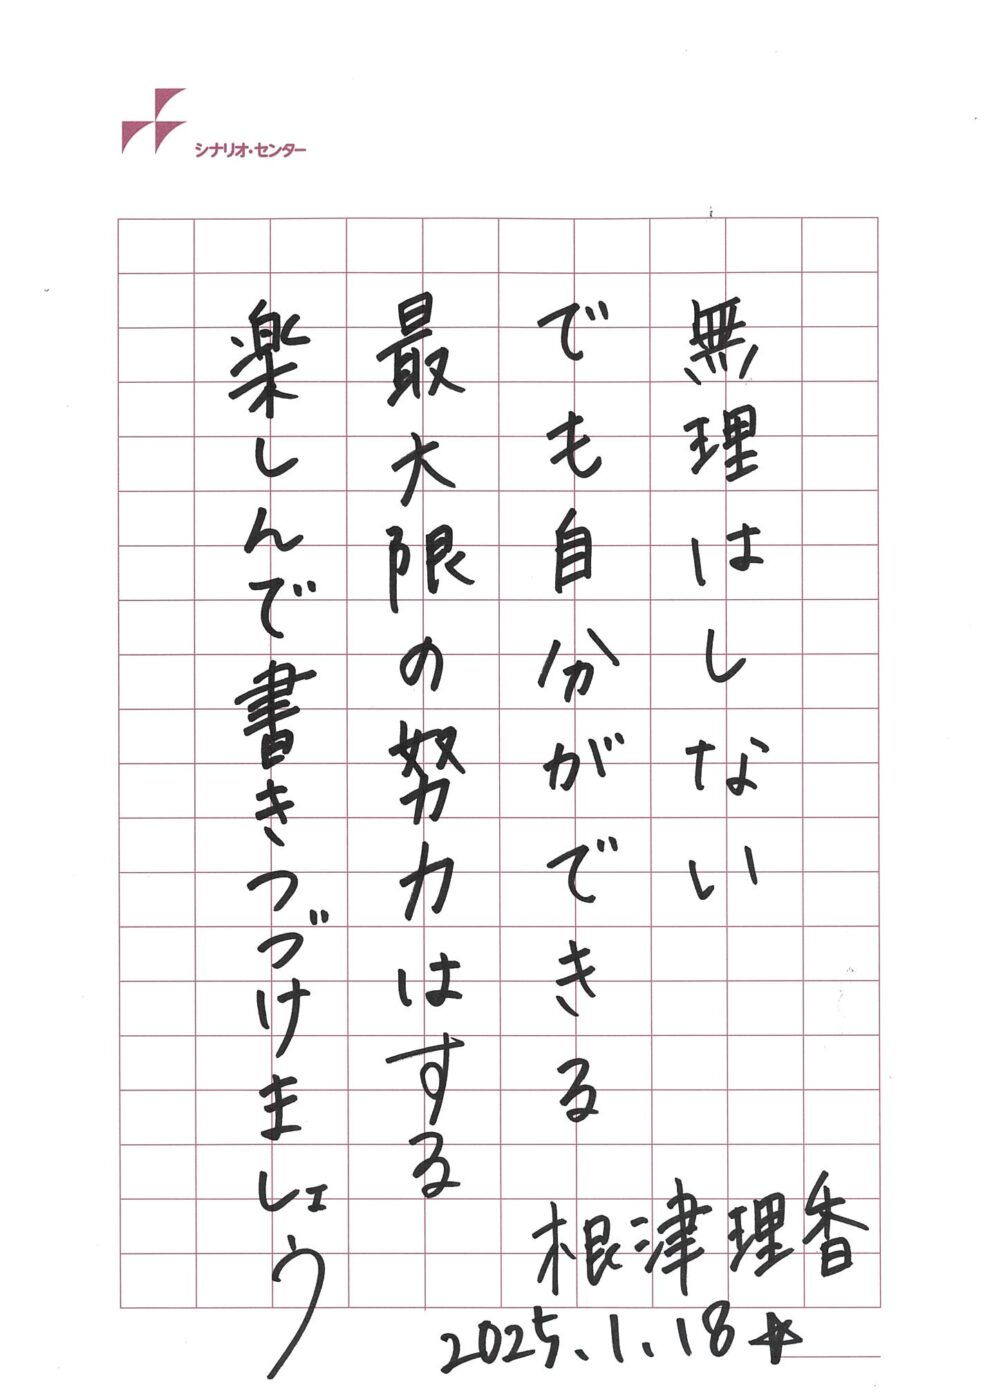 シナリオ・センター
無理はしない
でも自分ができる
最大限の努力はする
楽しんで書きつづけましょう
根津理香
2025.1.18☆